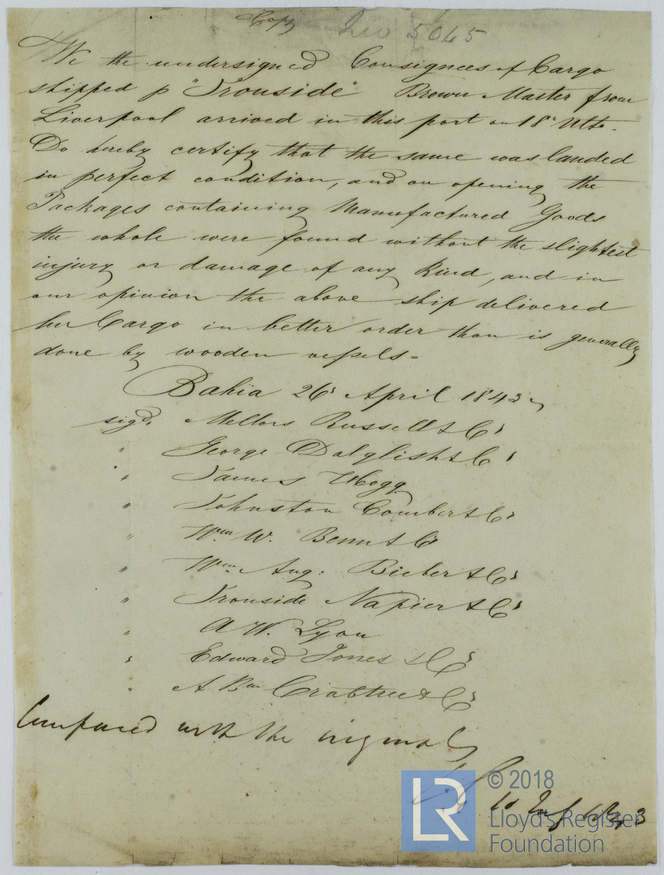 Copy
5065
We the undersigned Consignees of Cargo
shipped p "Ironside" Brown Master from
Liverpool arrived in this port on 18th Ulto.
Do hereby certify that the same was landed
in perfect condition, and on opening the
Packages containing Manufactured Goods
the whole were found without the slightest
injury or damage of any Kind, and in
our opinion the above ship delivered
her Cargo in better order than is generally
done by wooden vessels.
Bahia 26 April 1843
sigd. Mellors Russell & Co
" George Dalglish & Co
" James Hogg
" Johnston Comber & Co
" Wm W. Benn & Co
" Wm Aug: Bieber & Co
" Ironside Napier & Co
" A W. Lyon
" Edward Jones & Co
" A Bm Crabtree & Co
Compared with the original
LR
© 2018
Lloyd's Register
Foundation